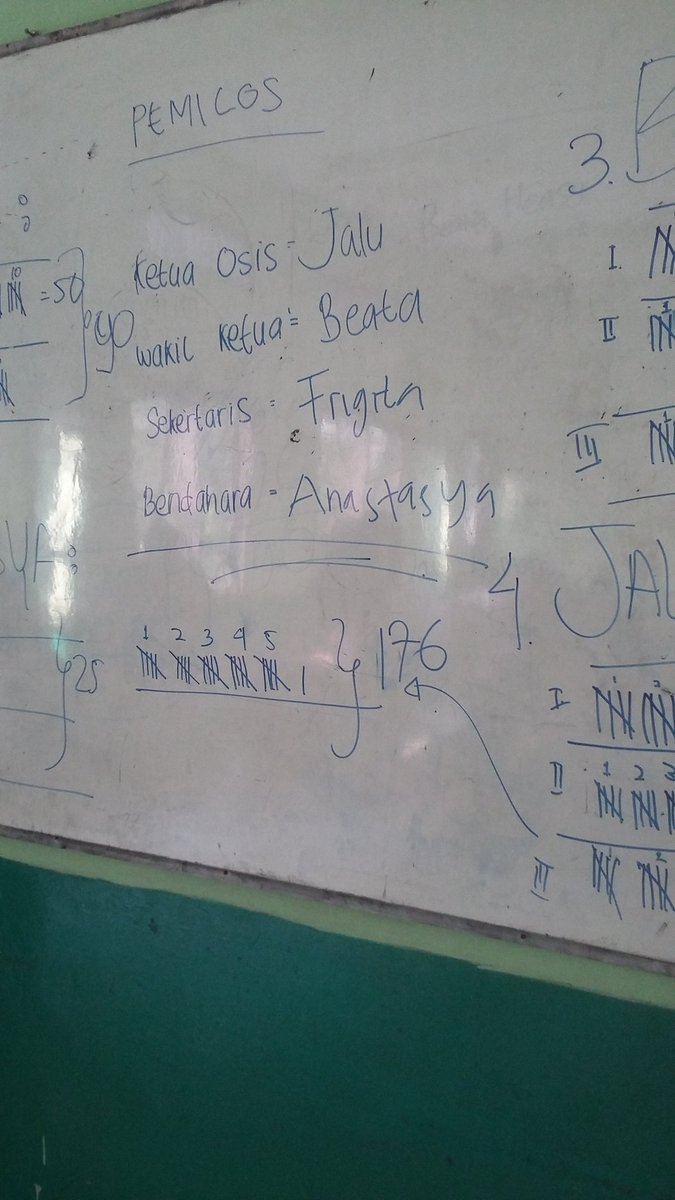 PEMICOS
Ketua Osis = Jalu
wakil Ketua = Beata
Sekertaris = Frigita
Bendahara = Anastasya
= 50
90
25
1 2 3 4 5
176
3. B
I.
II
III
4. JAL
I
II 1 2 3
III